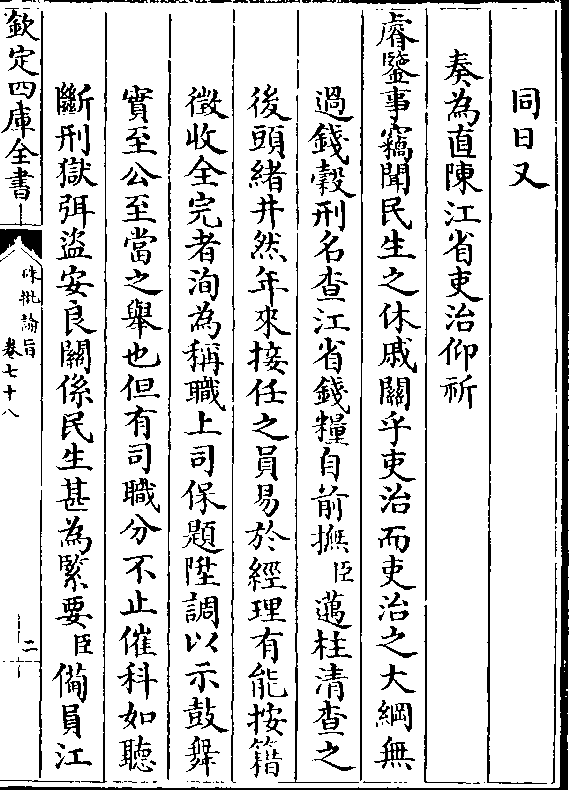 同日又
奏為直陳江省吏治仰祈
睿鑒事竊聞民生之休戚關乎吏治而吏治之大綱無
過錢穀刑名查江省錢糧自前撫臣邁柱清查之
後頭緒井然年來接任之員易於經理有能按籍
徵收全完者洵為稱職上司保題陞調以示鼓舞
實至公至當之舉也但有司職分不止催科如聽
斷刑獄弭盜安良關係民生甚為緊要臣備員江
欽定四庫全書
硃批諭旨
卷七十八
二